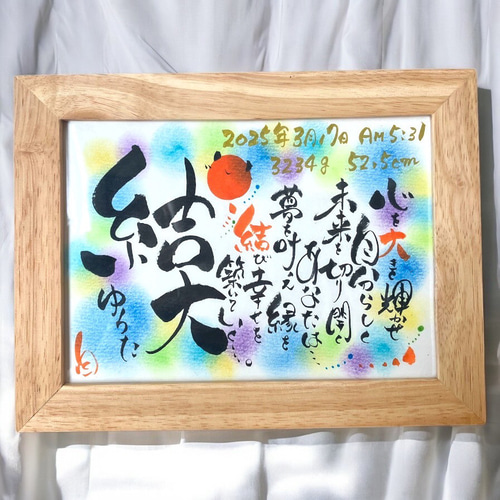 2025年3月17日 AM5:31
3234g 52.5cm
心を大きく輝かせ
自分らしく
未来を切り開く
あなたは…
夢を叶え縁を
結び幸せを
築いていく…。
結大
ゆうた